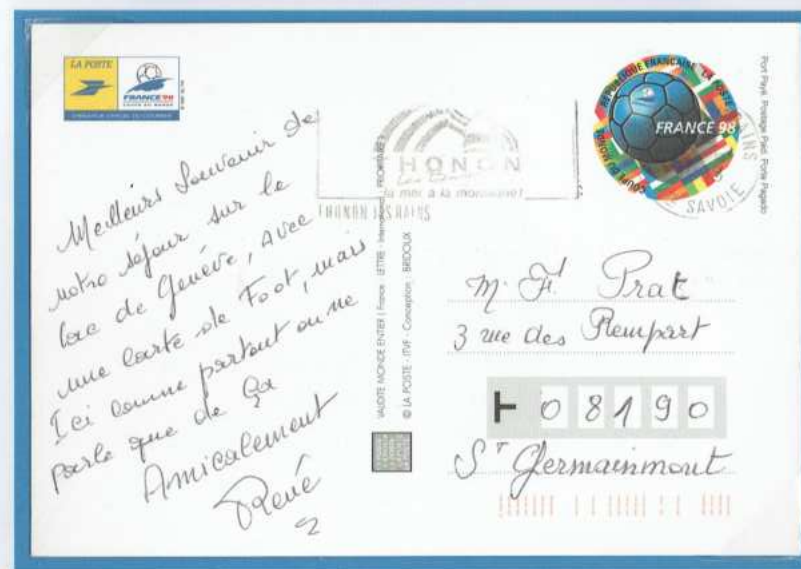 LA POSTE
FRANCE 98
COUPE DU MONDE
Meilleurs Souvenir de
notre séjour sur le
lac de Genéve, avec
une carte de Foot, mais
Ici comme partout on ne
parle que de Ça
Amicalement
René
HONON
la mer à la montagne!
THONON LES BAINS
VALIDITE MONDE ENTIER ( France : LETTRE - International : PRIORITAIRE )
© LA POSTE - ITVF - Conception : BRIDOUX
REPUBLIQUE FRANCAISE LA POSTE
FRANCE 98
COUPE DU MONDE
SAVOIE
Port Payé. Postage Paid. Porte Pagado
M. Fl Prat
3 rue des Rempart
T 08190
St Germainmont